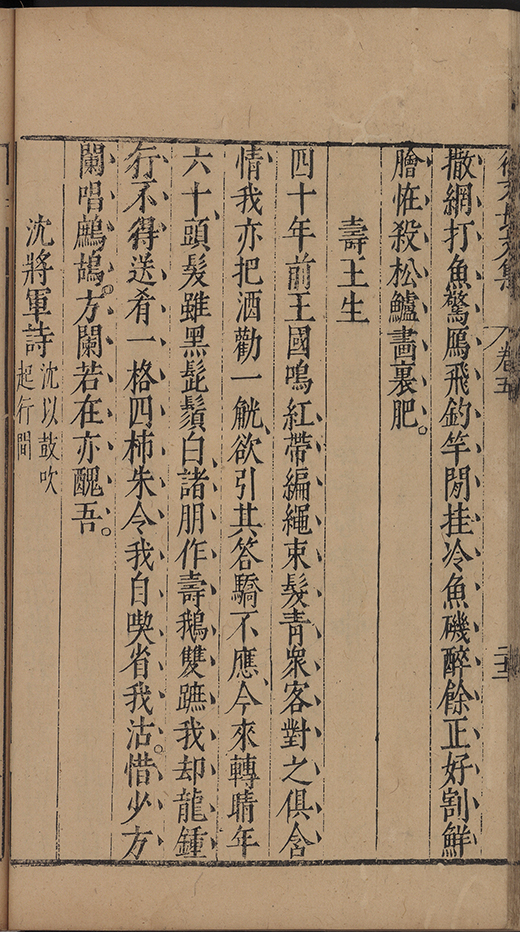 徐文長文集 卷五 二十三
撒網打魚驚鴈飛釣竿閒挂冷魚磯醉餘正好割鮮
膾恠殺松鱸畵裏肥。
壽王生
四十年前王國鳴紅帶編繩束髮青衆客對之俱含
情我亦把酒勸一觥欲引其答驕不應今來轉睛年
六十頭髮雖黑髭鬚白諸朋作壽鵝雙蹠我却龍鍾
行不得送肴一格四柿朱令我自喫省我沽。惜少方
闌唱鷓鴣。方闌若在亦醜吾。
沈將軍詩 沈以鼓吹
起行間